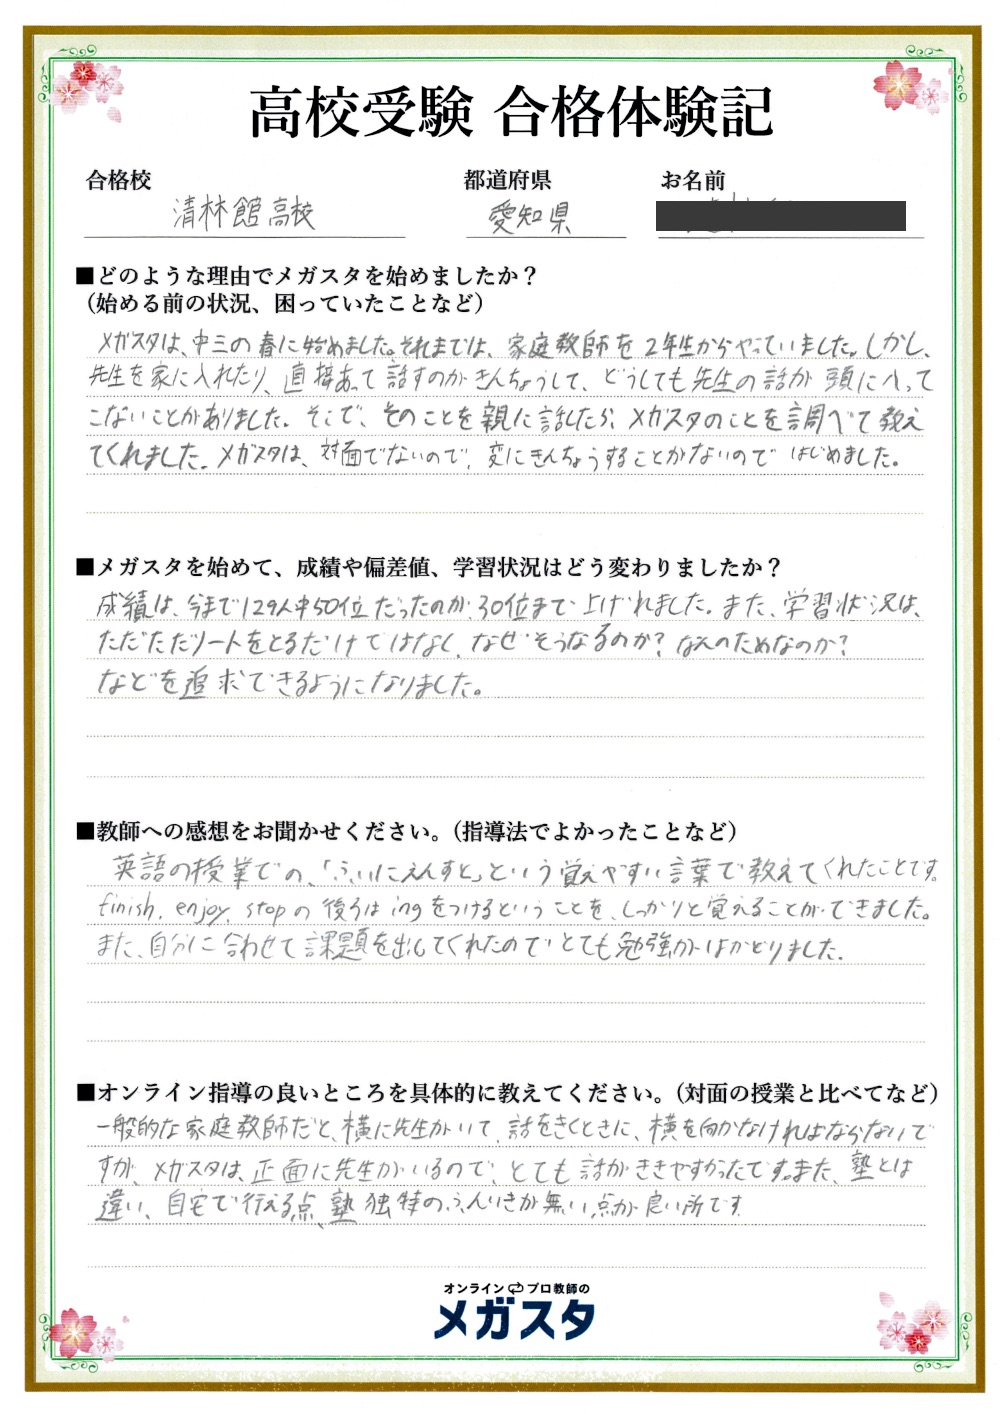 高校受験 合格体験記
合格校 都道府県 お名前
清林館高校 愛知県
■どのような理由でメガスタを始めましたか？
（始める前の状況、困っていたことなど）
メガスタは、中三の春に始めました。それまでは、家庭教師を2年生からやっていました。しかし、
先生を家に入れたり、直接あって話すのがきんちょうして、どうしても先生の話が頭に入って
こないことがありました。そこで、そのことを親に話したら、メガスタのことを調べて教え
てくれました。メガスタは、対面でないので、変にきんちょうすることがないのではじめました。
■メガスタを始めて、成績や偏差値、学習状況はどう変わりましたか？
成績は、今まで129人中50位だったのが、30位まで上げれました。また、学習状況は、
ただただノートをとるだけではなく、なぜそうなるのか？なんのためなのか？
などを追求できるようになりました。
■教師への感想をお聞かせください。（指導法でよかったことなど）
英語の授業での、「ふぃにえんすと」という覚えやすい言葉で教えてくれたことです。
finish, enjoy, stopの後ろはingをつけるということを、しっかりと覚えることができました。
また、自分に合わせて課題を出してくれたのでとても勉強がはかどりました。
■オンライン指導の良いところを具体的に教えてください。（対面の授業と比べてなど）
一般的な家庭教師だと、横に先生がいて、話をきくときに、横を向かなければならないで
すが、メガスタは、正面に先生がいるので、とても話がききやすかったです。また、塾とは
違い、自宅で行える点、塾独特のふんいきが無い点が良い所です
オンライン プロ教師の
メガスタ